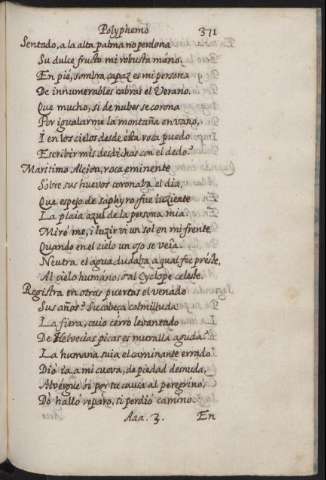 Polyphemo 371
Sentado, a la alta palma no perdona
Su dulce fructo mi robusta mano,
En pie, sombra capaz es mi persona
De innumerables cabras el Verano.
Que mucho, si de nubes se corona
Por igualarme la montaña en vano,
I en los cielos desde esta roca puedo
Escribir mis desdichas con el dedo?
Maritimo Alcion, roca eminente
Sobre sus huevos coronaba el dia,
Que espejo de saphyro fue luziente
La plaia azul de la persona mia
Mirè me, i luzir vi un sol en mi frente
Quando en el cielo un ojo se veìa
Neutra el agua dudaba a qual fee preste,
Al cielo humano, ò al Cyclope celeste.
Registra en otras puertas el venado
Sus años, su cabeça colmilluda
La fiera, cuio cerro levantado
De Helvecias picas es muralla aguda
La humana suia el caminante errado
Dio ia a mi cueva, de piedad desnuda,
Albergue oi por tu causa al peregrino,
Do hallò reparo, si perdiò camino.
Aaa. 3. En